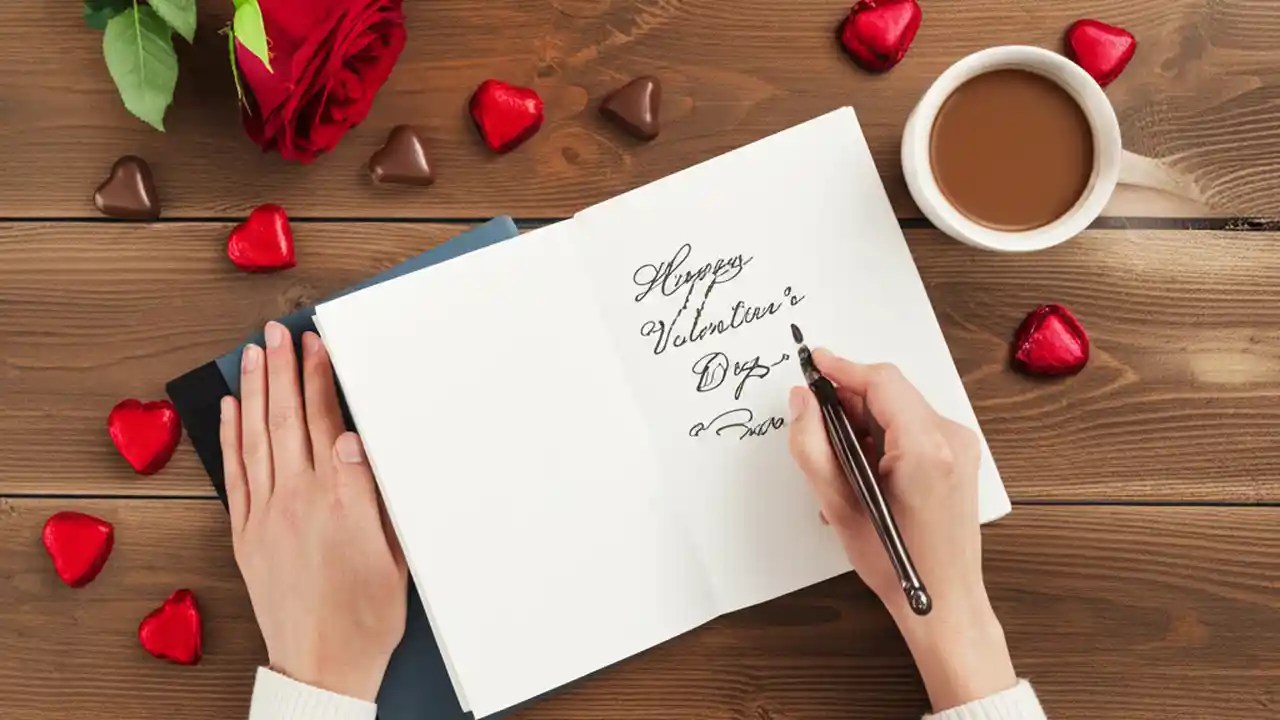 Happy
Valentine's
Day